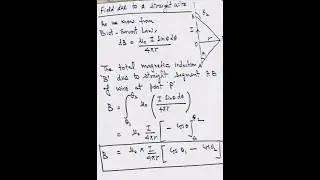 Field due to a straight wire
As we know from
Biot-Savart Law,
dB = μ₀ I sinθ dθ / 4πr
The total magnetic induction
'B' due to straight segment AB
of wire at point P
B = ∫_{θ₁}^{θ₂} μ₀ ( I sinθ dθ / 4πr )
= μ₀ I / 4πr [ - cosθ ]_{θ₁}^{θ₂}
B = μ₀ × I / 4πr [ cosθ₁ - cosθ₂ ]
B
θ₂
I
r